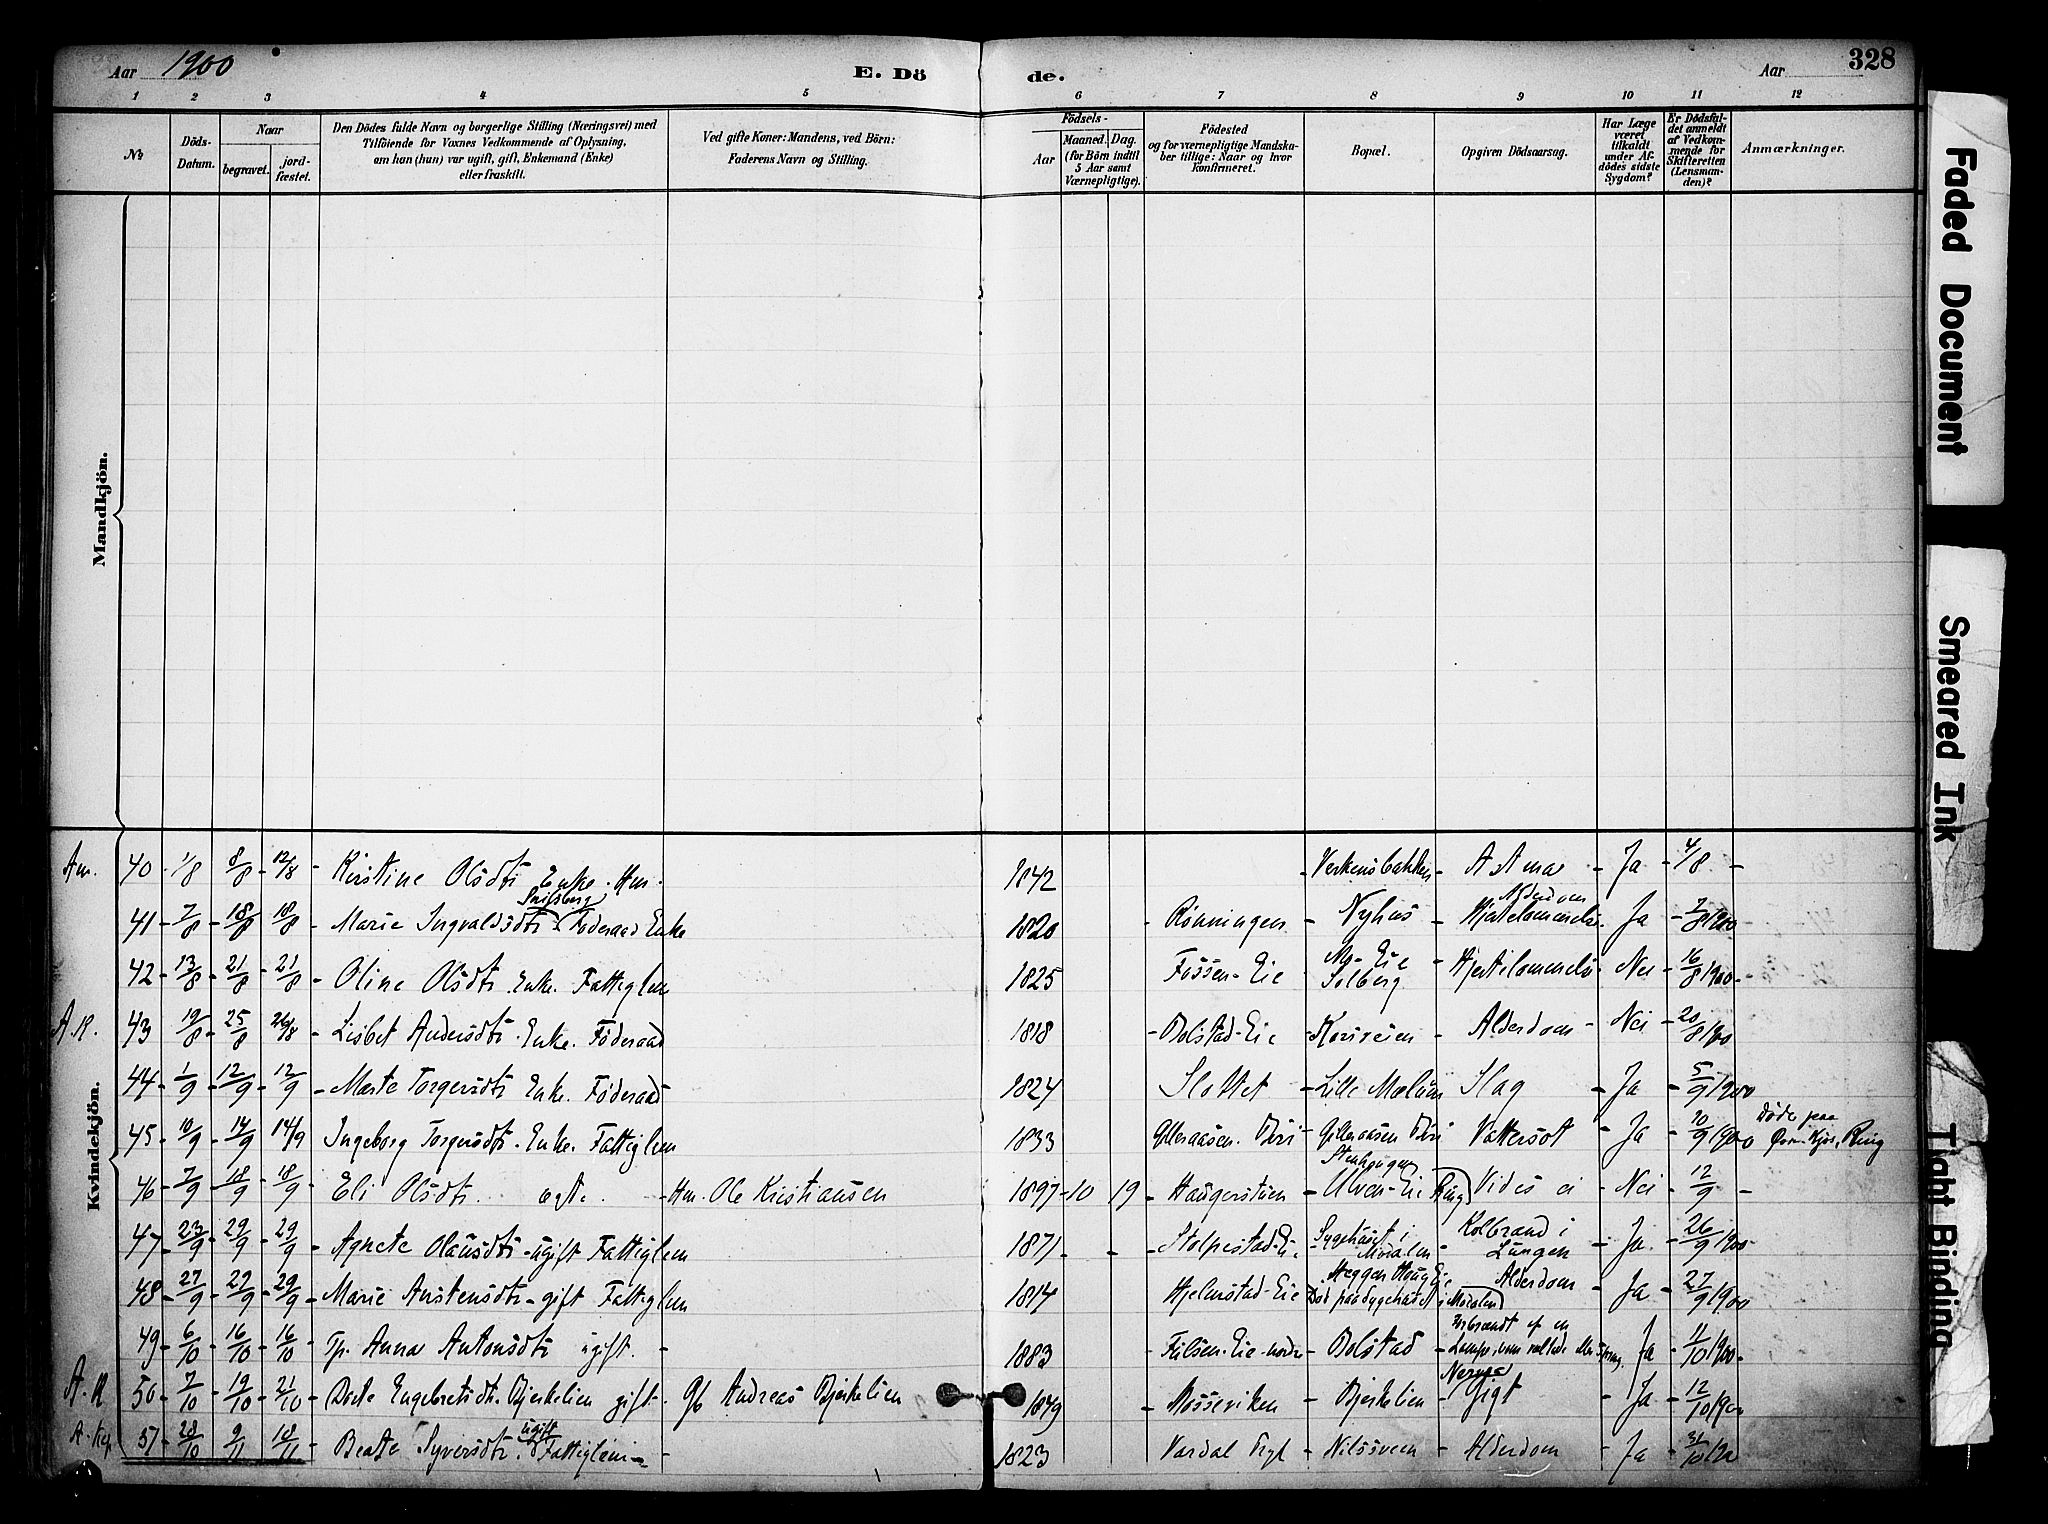 Aar 1900 E. Dö de. Aar 328
1 2 3 4 5 6 7 8 9 10 11 12
No
Döds-Datum.
Naar
begravet.
jord-fæstet.
Den Dödes fulde Navn og borgerlige Stilling (Næringsvei) med
Tilföiende for Voxnes Vedkommende af Oplysning,
om han (hun) var ugift, gift, Enkemand (Enke)
eller fraskilt.
Ved gifte Koner: Mandens, ved Börn:
Faderens Navn og Stilling.
Födsels-
Aar
Maaned. Dag.
(for Börn indtil
5 Aar samt
Værnepligtige).
Födested
og for værnepligtige Mandska-
ber tillige: Naar og hvor
konfirmeret.
Bopæl.
Opgiven Dödsaarsag.
Har Læge
været
tilkaldt
under Af-
dödes sidste
Sygdom?
Er Dödsfal-
det anmeldt
af Vedkom-
mende for
Skifteretten
(Lensman-
den)?
Anmærkninger.
Mandkjön.
Kvindekjön.
40 1/8 8/8 12/8 Kirstine Olsdtr Enke. Hm. 1842 Verkensbakken Astma Ja 4/8
41 7/8 18/8 18/8 Marie Ingvaldsdtr Föderaad Enke 1820 Rönningen Nyhus Alderdom Hjertelammelse Ja 7/8 1900
42 13/8 21/8 21/8 Oline Olsdtr Enke. Fattiglem 1825 Fossen-Eie Eie Solberg Hjertelammelse Nei 16/8 1900
A.K. 43 19/8 25/8 26/8 Lisbet Andersdtr Enke. Föderaad 1818 Bolstad-Eie Korsveien Alderdom Nei 20/8 1900
44 1/9 12/9 12/9 Marte Torgersdtr Enke. Föderaad 1824 Slottet Lille Mælum Slag Ja 5/9 1900
45 10/9 14/9 14/9 Ingeborg Torgersdtr Enke. Fattiglem 1833 Gilleraasen Gilleraasen Vattersot Ja 10/9 1900 Döde paa Ring
46 7/9 18/9 18/9 Eli Olsdtr. ægte. Hm. Ole Kristiansen 1897 10 19 Haugerstuen Stenhaugen Ulven-Eie Ring Vides ei Nei 12/9
47 23/9 29/9 29/9 Agnete Olausdtr ugift Fattiglem 1871 Stolpestad-Eie Sygehuset i Moelven Kolbrand i Lungen Ja 26/9 1900
48 27/9 29/9 29/9 Marie Arstensdtr gift Fattiglem 1814 Hjelmstad-Eie Heggen Haug Eie Död paa Sygehuset i Moelven Alderdom Ja 27/9 1900
49 6/10 16/10 16/10 Tp. Anna Antonsdtr ugift. 1883 Fulsen-Eie nordre Bolstad Forbrændt af en Lampe, som væltede Ja 11/10 1900
A.K 50 7/10 19/10 21/10 Dorte Engebretsdtr. Bjerkelien gift. Gb Andreas Bjerkelien 1849 Mosseviken Bjerkelien Gigt Ja 12/10 1900
51 28/10 9/11 18/11 Beate Syversdtr. ugift Fattiglem 1823 Vardal Nilssveen Alderdom Ja 31/10
Faded Document
Smeared Ink
Tight Binding